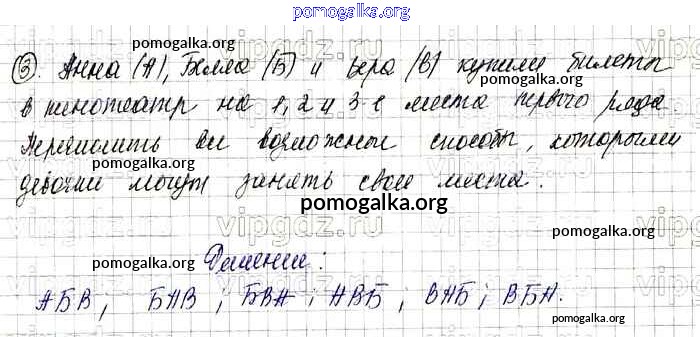 pomogalka.org
pomogalka.org
③. Анна (А), Белла (Б) и Вера (В) купили билеты
pomogalka.org
в кинотеатр на 1, 2 и 3-е места первого ряда
Перечислить все возможные способы, которыми
pomogalka.org pomogalka.org
девочки могут занять свои места.
pomogalka.org
Решение:
pomogalka.org pomogalka.org
АБВ, БАВ; БВА; АВБ; ВАБ; ВБА.
pomogalka.org pomogalka.org